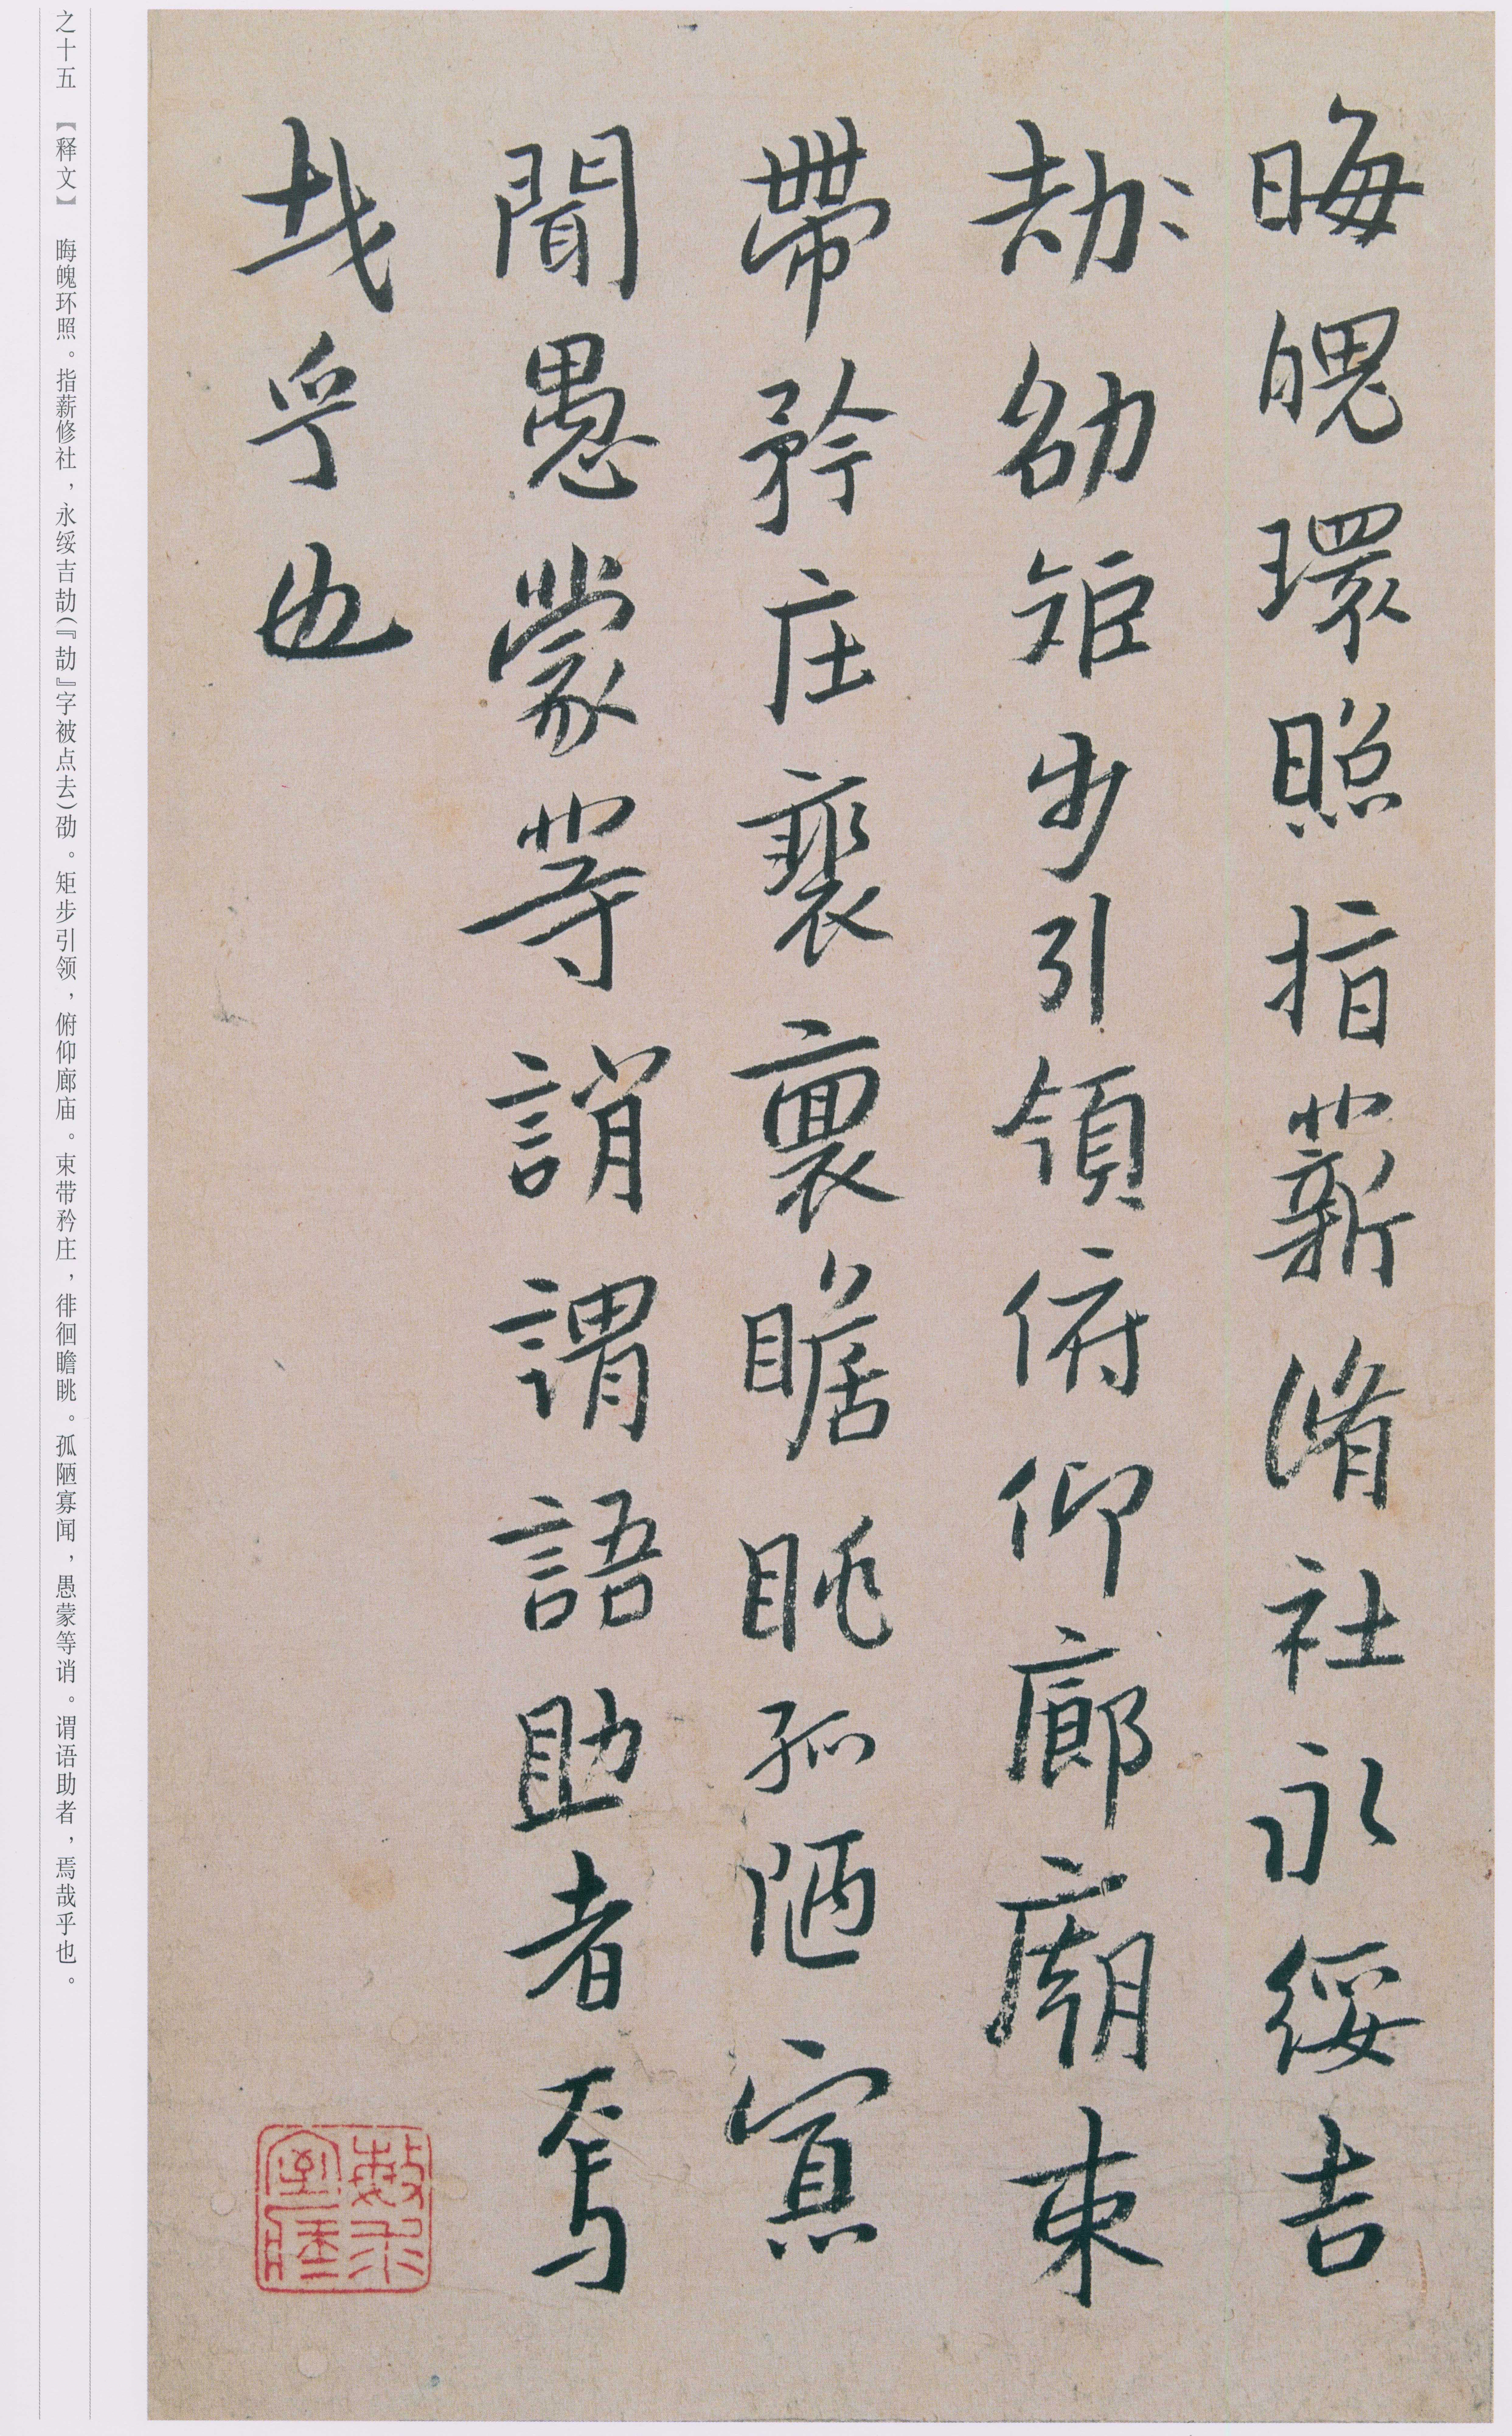 晦魄環照指薪脩社永綏吉
劼〻劭矩步引領俯仰廊廟束
帶矜庄裵裹瞻眺孤陋寡
聞愚蒙等誚謂語助者焉
哉乎也
之十五 【释文】 晦魄环照。指薪修社，永绥吉劼(『劼』字被点去)劭。矩步引领，俯仰廊庙。束带矜庄，徘徊瞻眺。孤陋寡闻，愚蒙等诮。谓语助者，焉哉乎也。